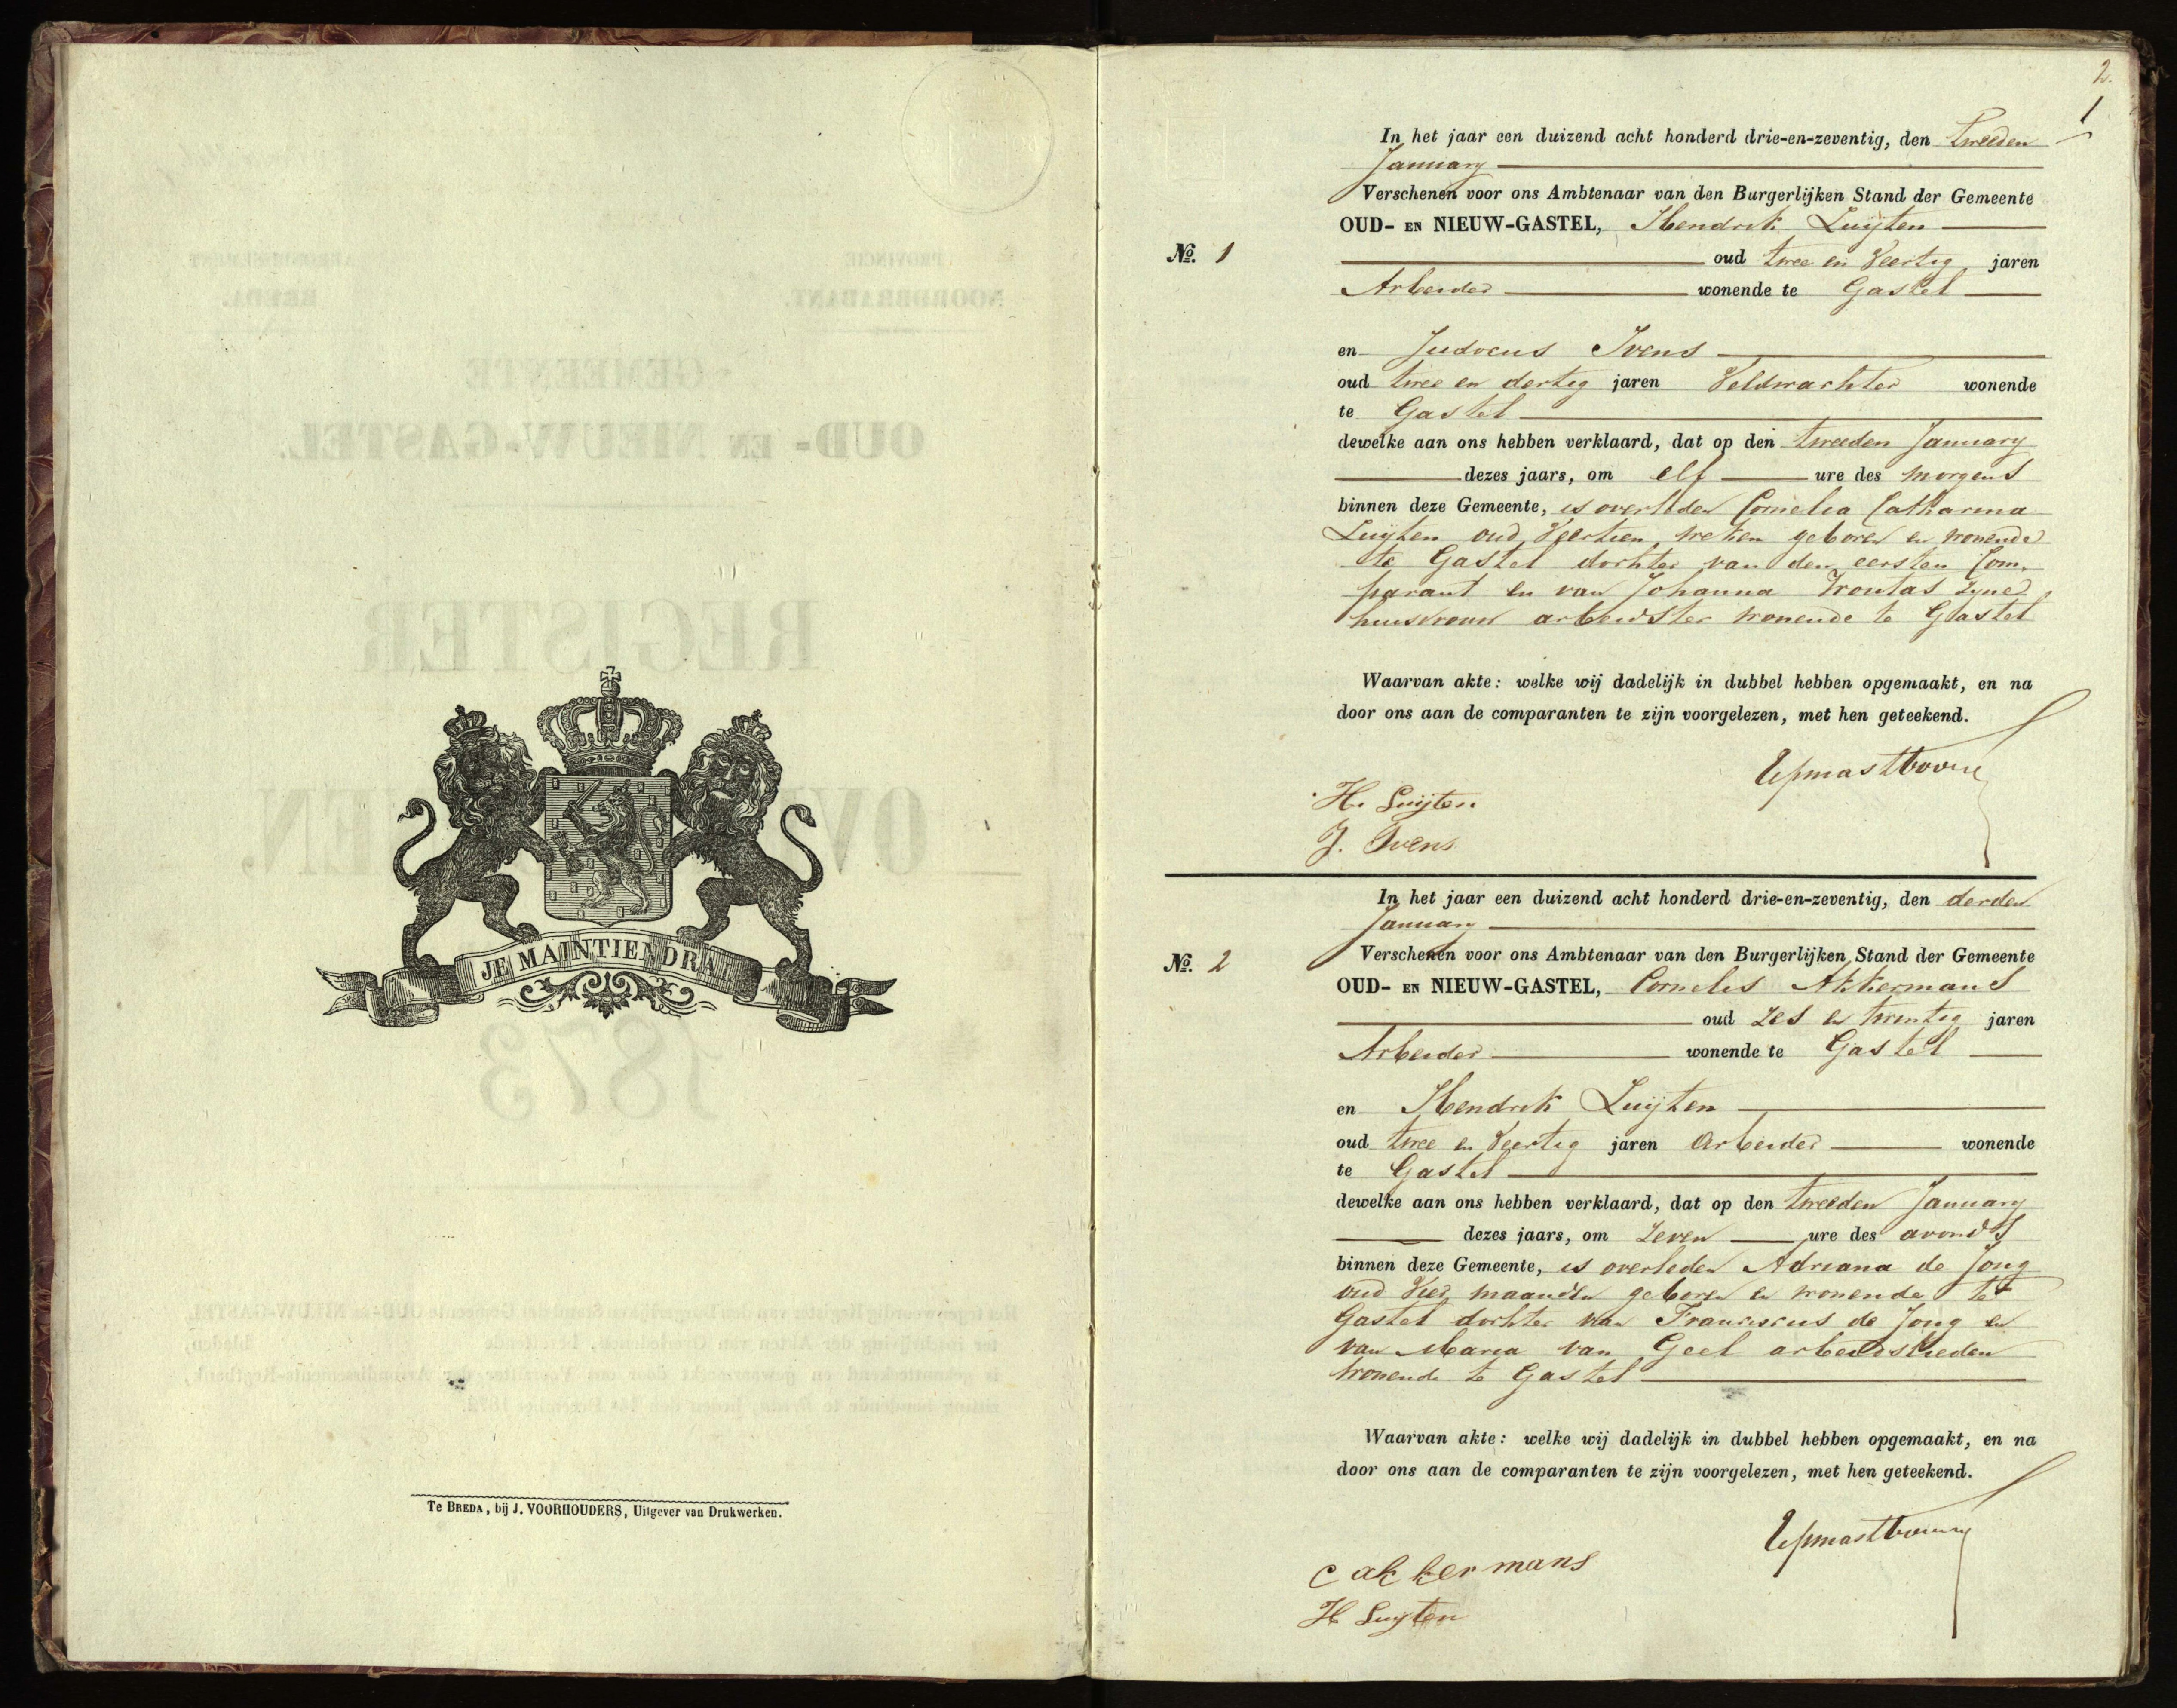 JE MAINTIENDRAI
Te BREDA, bij J. VOORHOUDERS, Uitgever van Drukwerken.
2.
1
In het jaar een duizend acht honderd drie-en-zeventig, den tweeden
January
Verschenen voor ons Ambtenaar van den Burgerlijken Stand der Gemeente
OUD- EN NIEUW-GASTEL, Hendrik Luijten
No. 1
oud twee en Veertig jaren
Arbeider wonende te Gastel
en Judocus Ivens
oud twee en dertig jaren Veldwachter wonende
te Gastel
dewelke aan ons hebben verklaard, dat op den tweeden January
dezes jaars, om elf ure des morgens
binnen deze Gemeente, is overleden Cornelia Catharina
Luijten oud Veertien weken geboren en wonende
te Gastel dochter van den eersten Com,
parant en van Johanna zyne
huisvrouw arbeidster wonende te Gastel
Waarvan akte: welke wij dadelijk in dubbel hebben opgemaakt, en na
door ons aan de comparanten te zijn voorgelezen, met hen geteekend.
H. Luijten
J. Ivens
In het jaar een duizend acht honderd drie-en-zeventig, den derden
January
No. 2
Verschenen voor ons Ambtenaar van den Burgerlijken Stand der Gemeente
OUD- EN NIEUW-GASTEL, Cornelis Akkermans
oud zes en twintig jaren
Arbeider wonende te Gastel
en Hendrik Luijten
oud twee en Veertig jaren Arbeider wonende
te Gastel
dewelke aan ons hebben verklaard, dat op den tweeden January
dezes jaars, om zeven ure des avonds
binnen deze Gemeente, is overleden Adriana de Jong
oud Vier maanden geboren en wonende te
Gastel dochter van Franciscus de Jong en
van Maria van Geel arbeidslieden
wonende te Gastel
Waarvan akte: welke wij dadelijk in dubbel hebben opgemaakt, en na
door ons aan de comparanten te zijn voorgelezen, met hen geteekend.
c akkermans
H Luijten